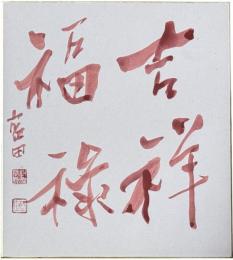 吉祥
福禄